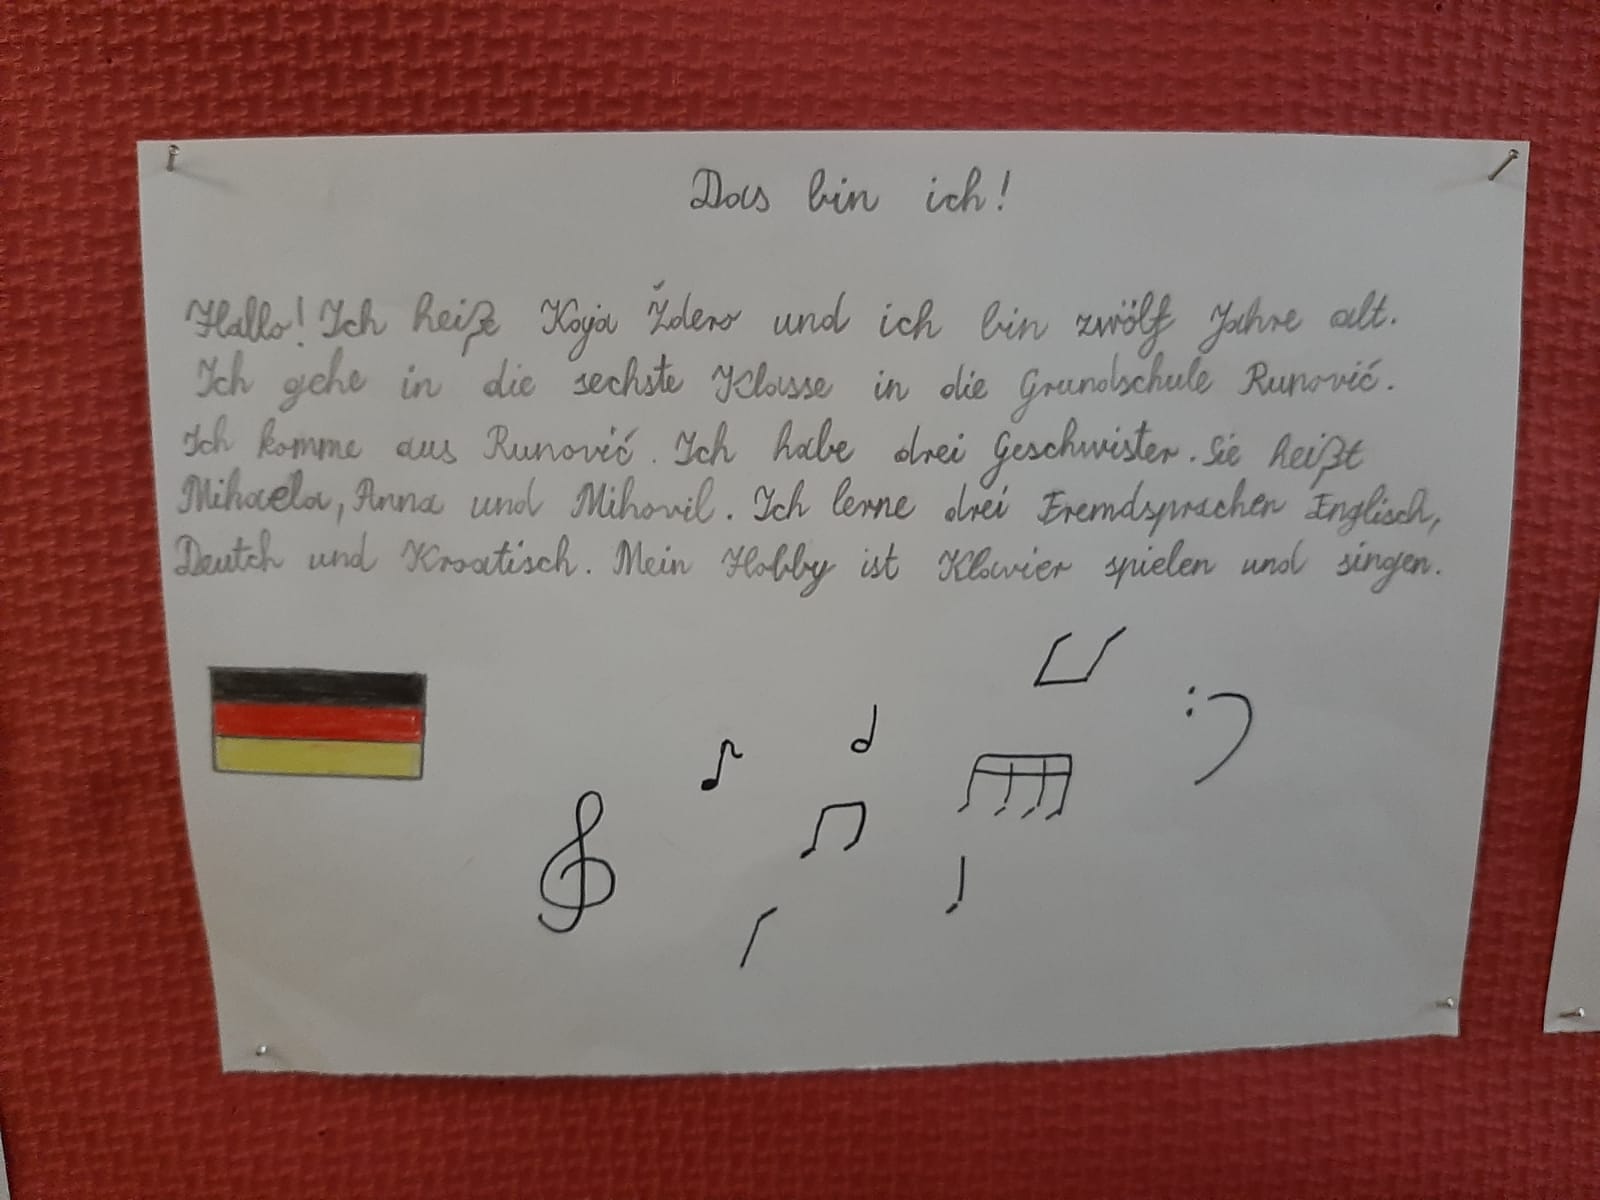 Das bin ich!
Hallo! Ich heiße Koja Ždero und ich bin zwölf Jahre alt.
Ich gehe in die sechste Klasse in die Grundschule Runović.
Ich komme aus Runović. Ich habe drei Geschwister. Sie heißt
Mihaela, Anna und Mihovil. Ich lerne drei Fremdsprachen Englisch,
Deutch und Kroatisch. Mein Hobby ist Klavier spielen und singen.